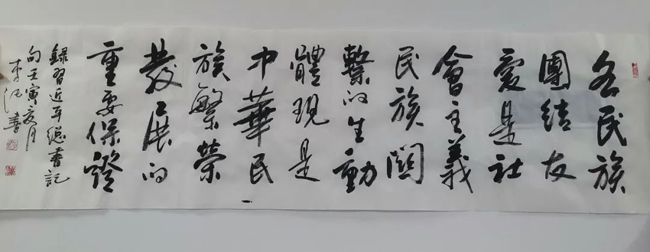 各民族
團結友
愛是社
會主義
民族關
繫的生動
體現是
中華民
族繁榮
發展的
重要保證
錄習近平總書記
句壬寅月
李書